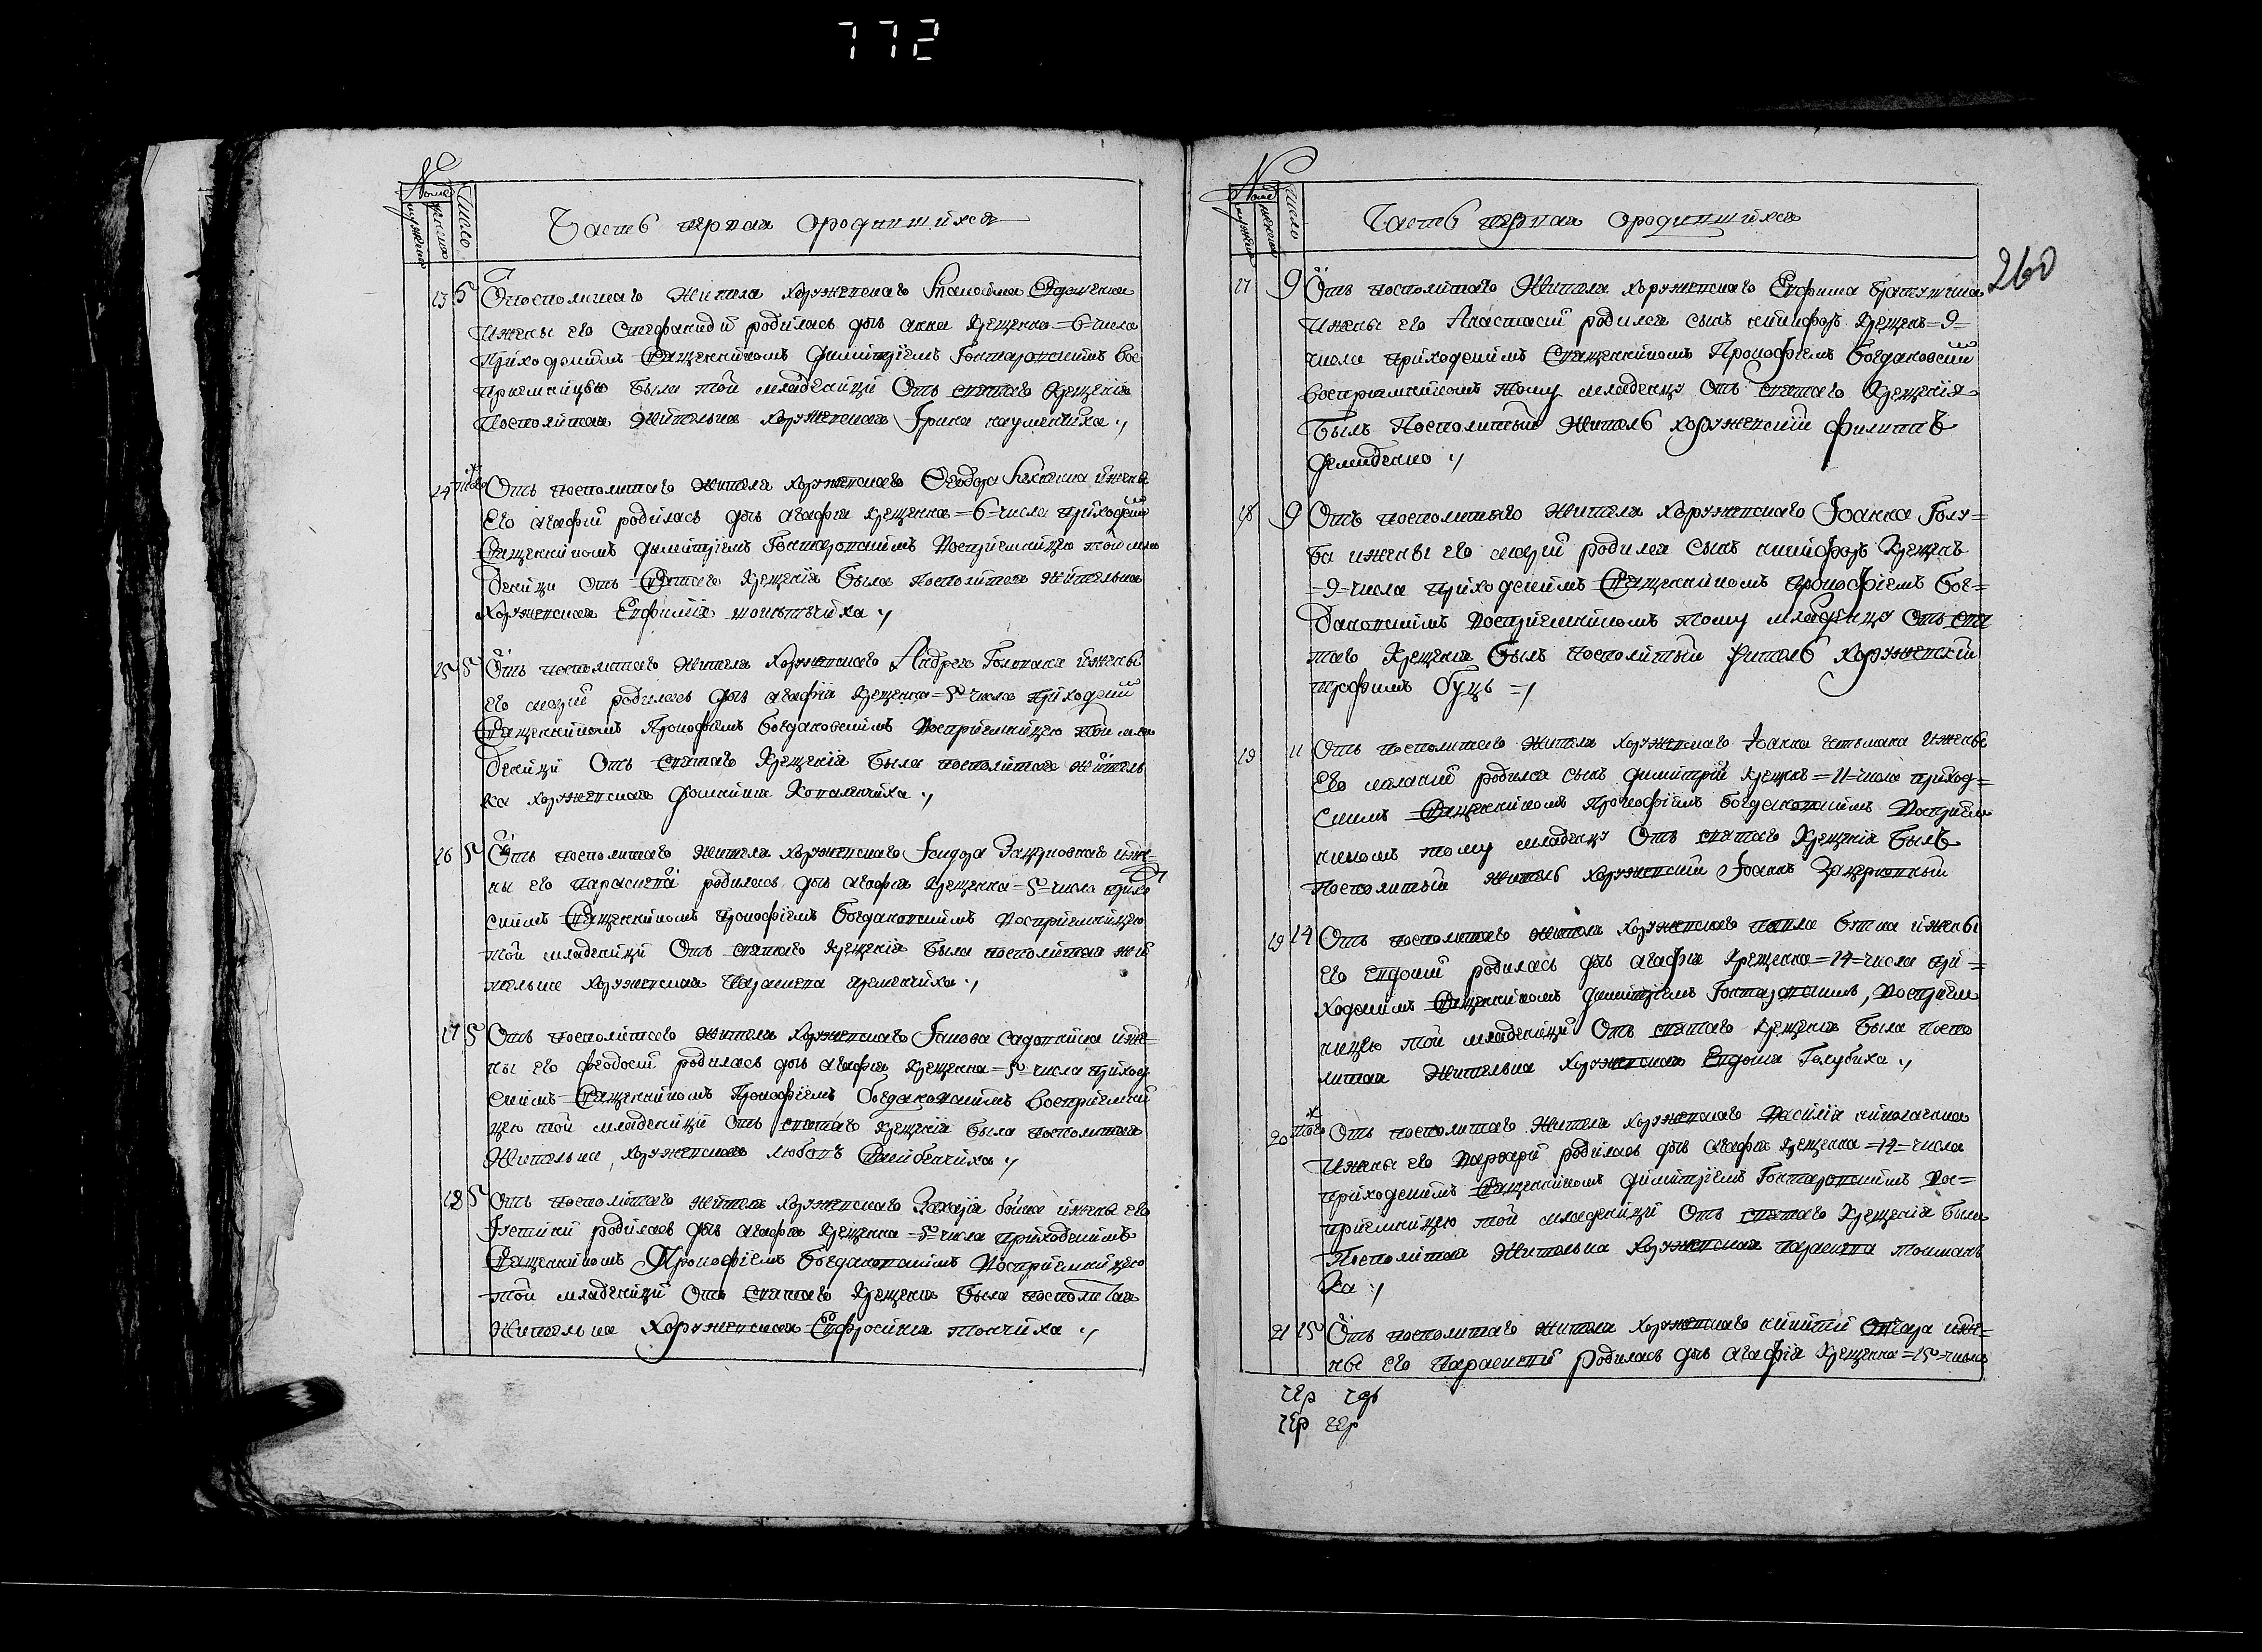 772
Часть первая ородившихся
13 5 Отпосполитаго жителя хоружевскаго
ижены его Стефаниды родилась дщь анна крещенна =6= числа
приходскимъ Священникомъ Димитріемъ Гонтаровскимъ вос
приемницею была той младеницы Отъ святаго крещенія
посполитая жителька хоружевская Ірина науменчиха
14 Отъ посполитаго жителя хоружевскаго Ѳеодора ижены
его агафіи родилась дщь агафія крещенна =6= числа приходским
Священникомъ Димитріемъ Гонтаровскимъ восприемницею той мла
деници Отъ Святаго крещенія была посполитая жителька
хоружевская Евфимія
15 5 Отъ посполитаго жителя хоружевскаго Андрея Головача ижены
его маріи родилась дщь агафія крещенна =5= числа приходским
Священникомъ Прокофіемъ Богдановскимъ восприемницею той мла
деници Отъ святаго крещенія была посполитая жітель
ка хоружевская Домникия Коваленчиха
16 5 Отъ посполитаго жителя хоружевскаго Ісидора Зацерковнаго иже=
ны его параскеви родилась дщь агафія крещенна =5= числа прихо
скимъ Священникомъ Прокофіемъ Богдановскимъ восприемницею
той младеници Отъ святаго крещенія была посполитая жи
телька хоружевская Параскева яременчиха
17 5 Отъ посполитаго жителя хоружевскаго Іакова Садовника иже=
ны его феодосіи родилась дщь агафія крещенна =5= числа приход
скимъ Священникомъ Прокофіемъ Богдановскимъ восприемни
цею той младеници отъ святаго крещенія была посполитая
жителька хоружевская любовъ
18 5 Отъ посполитаго жителя хоружевскаго Захарія бойка ижены его
родилась дщь агафія крещенна =5= числа приходскимъ
Священникомъ Прокофіемъ Богдановскимъ восприемницею
той младеници Отъ святаго крещенія была посполитая
жителька хоружевская Евфросинія
Часть первая ородившихся
260
17 9 Отъ посполитаго жителя хоружевскаго Евфима
ижены его Анастасіи родился сынъ никифоръ крещенъ =9=
числа приходскимъ Священникомъ Прокофіемъ Богдановским
восприемникомъ тому младенцу Отъ святаго крещенія
былъ Посполитый житель хоружевский филиппъ
демиденко
18 9 Отъ посполитаго жителя хоружевскаго Іоанна Голу=
ба ижены его маріи родился сынъ никифоръ крещенъ
=9= числа приходскимъ Священникомъ Прокофіемъ Бог=
дановскимъ восприемникомъ тому младенцу Отъ свя
таго крещенія былъ посполитый житель хоружевский
трофимъ буцъ
19 11 Отъ посполитаго жителя хоружевскаго Іоанна гетьмана ижены
его меланіи родился сынъ димитрій крещенъ =11= числа приход=
скимъ Священникомъ Прокофіемъ Богдановскимъ восприем
никомъ тому младенцу Отъ святаго крещенія былъ
посполитый житель хоружевский Іоаннъ Зацерковный
19 14 Отъ посполитаго жителя хоружевскаго павла бутка ижены
его Евдокіи родилась дщь агафія крещенна =14= числа при=
ходскимъ Священникомъ Димитріемъ Гонтаровскимъ, восприем
ницею той младеници Отъ святаго крещенія была поспо
литая жителька хоружевская Евдокия Голубиха
20 того Отъ посполитаго жителя хоружевскаго василія николаенка
ижены его варвари родилась дщь агафія крещенна =14= числа
приходскимъ Священникомъ Димитріемъ Гонтаровскимъ вос=
приемницею той младеници Отъ святаго крещенія была
Посполитая жителька хоружевская параскева
ка
21 15 Отъ посполитаго жителя хоружевскаго никити иже=
ны его параскеви родилась дщь агафія крещенна =15= числа